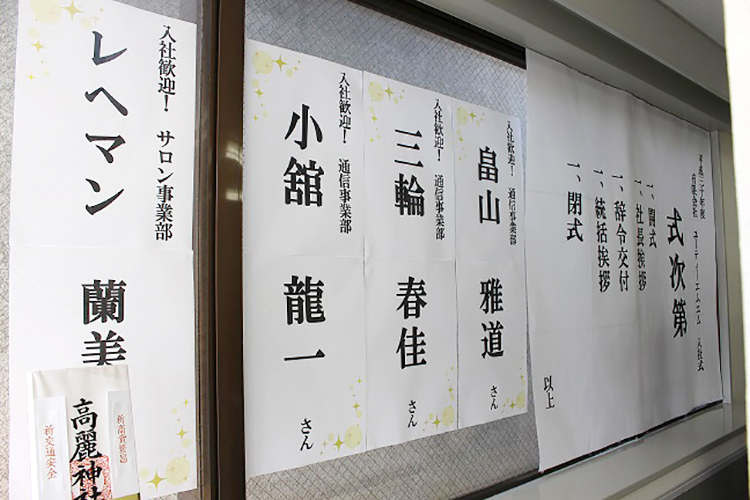 平成三十年度
有限会社 ユーティーエムエム 入社式
式次第
一、開式
一、社長挨拶
一、辞令交付
一、統括挨拶
一、閉式
以上
入社歓迎! 通信事業部
畠山 雅道 さん
入社歓迎! 通信事業部
三輪 春佳 さん
入社歓迎! 通信事業部
小舘 龍一 さん
入社歓迎! サロン事業部
レヘマン 蘭美
高麗神社
祈交通安全